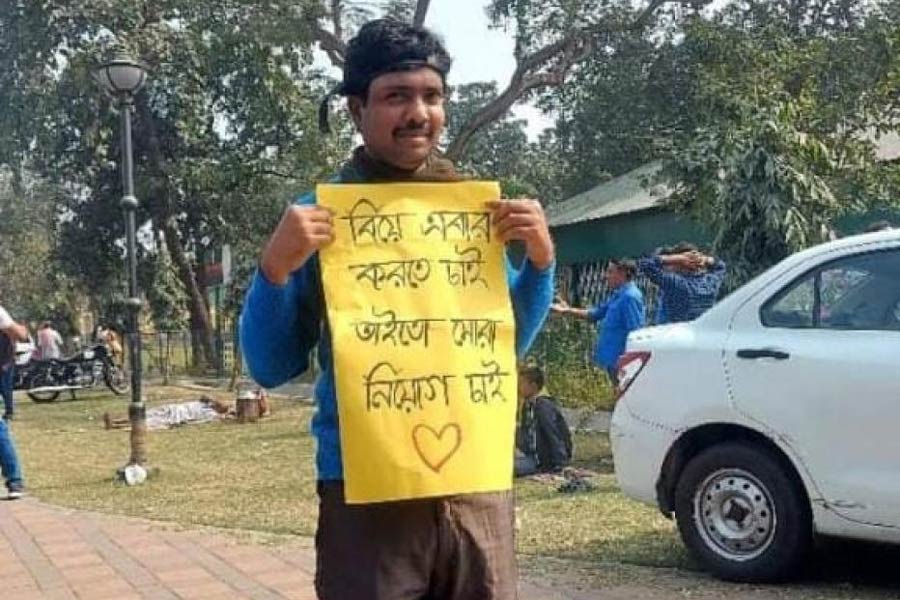 বিয়ে এবার
করতে চাই
তাইতো মোরা
নিয়োগ চাই